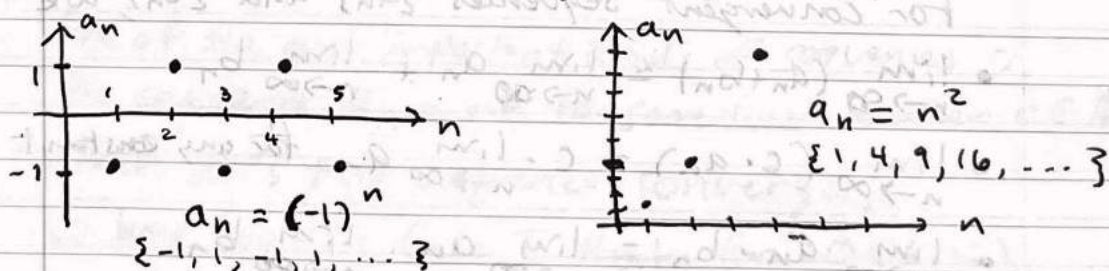 a_n
1
1
2
3
4
5
n
-1
a_n = (-1)^n
{-1, 1, -1, 1, .... }
a_n
a_n = n^2
{1, 4, 9, 16, .... }
n